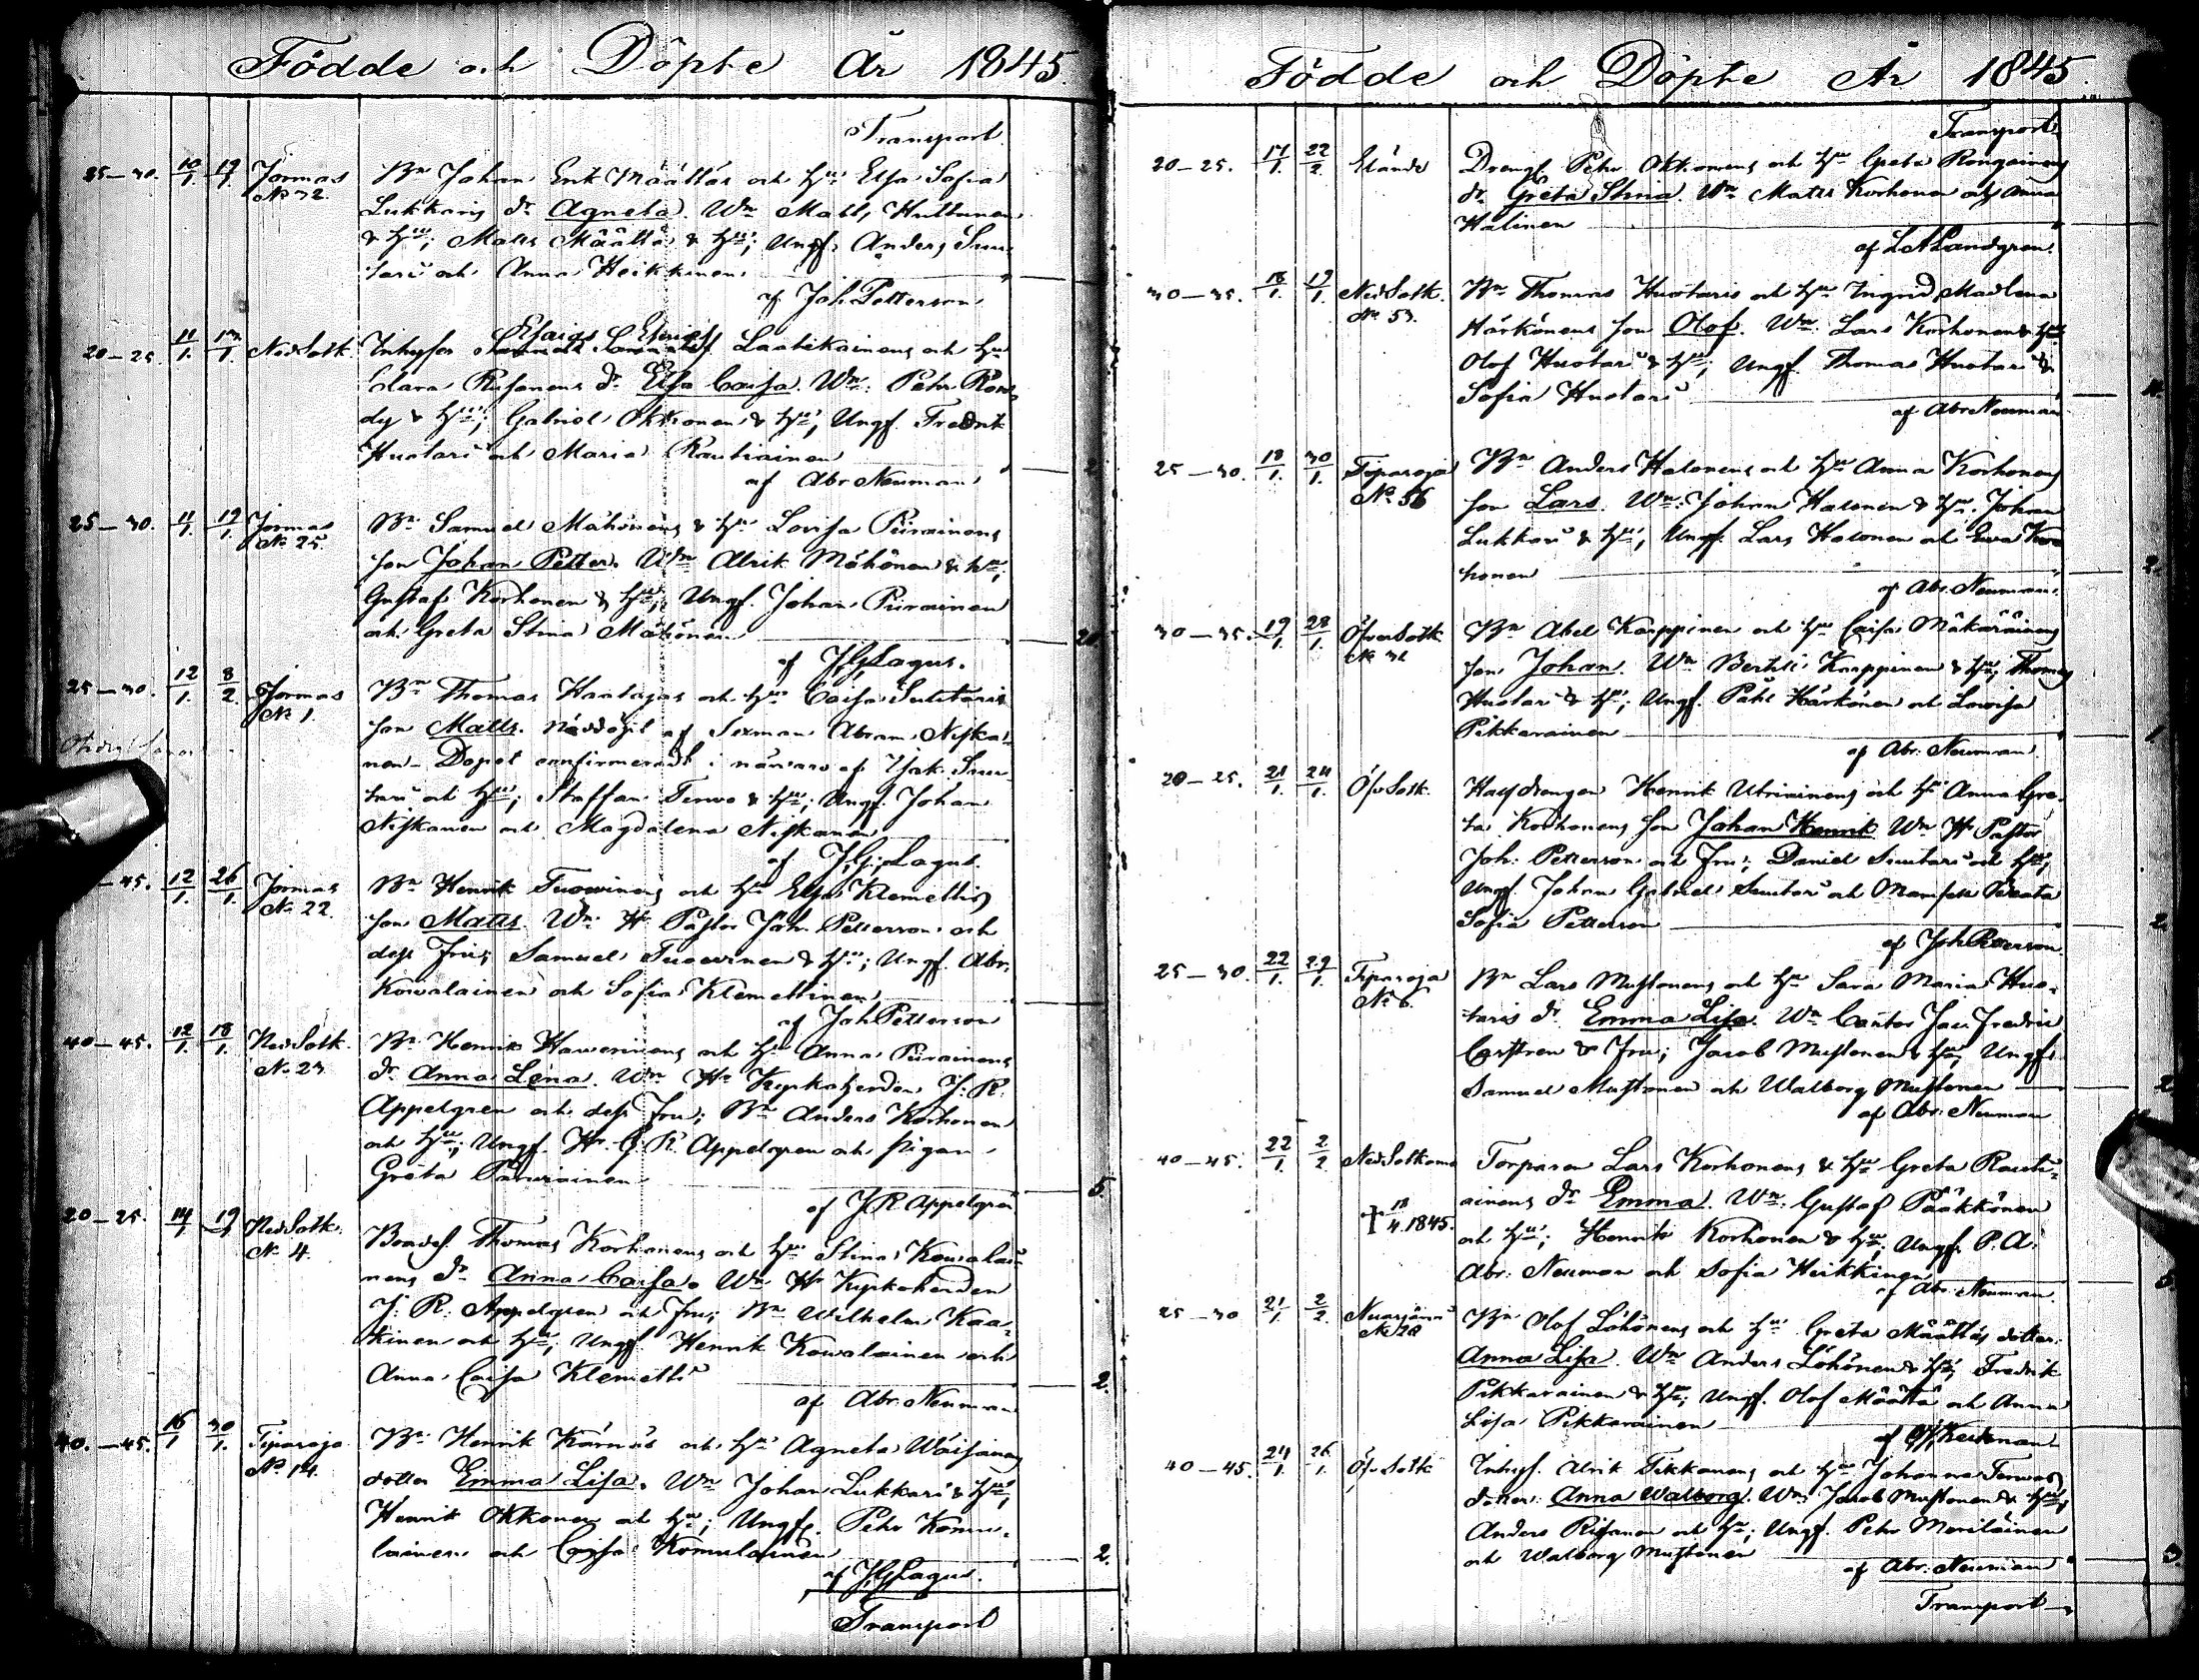 Födde och Döpte År 1845.
Transport
25–30. 10/1. 19/1. Jormas Bn Johan Erik Määttäs och Hu Elsa Sofia
No 32. Lukkaris dr Agneta. Wn Matts Huttunen
& Hu; Matts Määttä & Hu; Ungf. Anders
och Anna Heikkinen
af Joh Petterson
20–25. 11/1. 13/1. NedSotk. Inhyses Esaias Laatikainens och Hu
Clara Risanens dr Elsa Caisa. Wn Pehr
& Hu; Gabriel Okkonen & Hu; Ungf. Fredrik
Huotari och Maria Rautiainen
2.
af Abr Neuman
25–30. 11/1. 19/1. Jormas Bn Samuel Mähönens & Hu Lovisa Piirainens
No 25. son Johan Petter. Wn Alrik Mähönen & Hu;
Gustaf Korhonen & Hu; Ungf. Johan Piirainen
och Greta Stina Mähönen
af JGLagus.
25–30. 12/1. 8/2. Jormas Bn Thomas Haatajas och Hu Caisa
No 1. son Matts. Nöddöpt af Sexman Abram Niska-
nen. Dopet confirmeradt i närvaro af Isak
och Hu; Staffan Terwo & Hu; Ungf. Johan
Niskanen och Magdalena Niskanen
af J.G. Lagus.
45. 12/1. 26/1. Jormas Bn Henrik Tuowinens och Hu Elsa Klemettis
No 22. son Matts. Wn Hr Pastor Joh. Petterson och
dess Fru; Samuel Tuowinen & Hu; Ungf. Abr.
Kowalainen och Sofia Klemettinen
af Joh Petterson
40–45. 12/1. 18/1. NedSotk. Bn Henrik Hawerinens och Hu Anna Piirainens
No 23. dr Anna Lena. Wn Hr Kyrkoherden J. R.
Appelgren och dess Fru; Bn Anders Korhonen
och Hu; Ungf. Hr G. R. Appelgren och pigan
Greta Piirainen
5.
af JR Appelgren
20–25. 14/1. 19/1. NedSotk. Bondes. Thomas Korhonens och Hu Stina Kowalai-
No 4. nens dr Anna Caisa. Wn Hr Kyrkoherden
J. R. Appelgren och Fru; Bn Wilhelm Kaa-
kinen och Hu; Ungf. Henrik Kowalainen och
Anna Caisa Klemetti
2.
af Abr. Neuman
40–45. 16/1 30/1. Tiparoja Bn Henrik Kärnäs och Hu Agneta Wäisänens
No 14. dotter Emma Lisa. Wn Johan Lukkari & Hu;
Henrik Okkonen och Hu; Ungf. Pehr Komu-
lainen och Caisa Komulainen
2.
af JGLagus.
Transport
Födde och Döpte År 1845.
Transport
20–25. 17/1. 22/2. Drengs. Pehr Okkonens och Hu Greta Rongainens
dr Greta Stina. Wn Matts Korhonen och Anna
Halinen
af Landgren.
30–35. 18/1. 19/1. NedSotk. Bn Thomas Huotaris och Hu Ingrid Madlena
No 53. Härkönens son Olof. Wn Lars Korhonen & Hu
Olof Huotari & Hu; Ungf. Thomas Huotari &
Sofia Huotari
af Abr Neuman
25–30. 18/1. 30/1. Tiparoja Bn Anders Halonens och Hu Anna Korhonens
No 56 son Lars. Wn Johan Halonen & Hu. Johan
Lukkari & Hu; Ungf. Lars Halonen och Ewa Kor
honen
2.
af Abr. Neuman.
30–35. 19/1. 28/1. ÖfverSotk Bn Abel Karppinen och Hu Caisa Mäkäräinens
son Johan. Wn Bertil Karppinen & Hu; Thomas
Huotari & Hu; Ungf. Påhl Härkönen och Lowisa
Pikkarainen
1.
af Abr. Neuman
20–25. 21/1. 24/1. ÖfvSotk. Drengen Henrik Utriainens och Hu Anna Gre-
ta Korhonens son Johan Henrik. Wn Hr Pastor
Joh: Petterson och Fru; Daniel och Hu;
Ungf. Johan Gabriel och Mamsell Beata
Sofia Petterson
2.
af Joh Petterson
25–30. 22/1. 29/1. Tiparoja Bn Lars Mustonens och Hu Sara Maria Huo-
No 6. taris dr Emma Lisa. Wn Cantor Jac. Fredric
Castren & Fru; Jacob Mustonen & Hu; Ungf.
Samuel Mustonen och Walborg Mustonen
2
af Abr. Neuman
40–45. 22/1. 2/2. NedSotkamo Torparen Lars Korhonens & Hu Greta Rauti-
ainens dr Emma. Wn Gustaf Pääkkönen
† 18/4.1845. och Hu; Henrik Korhonen & Hu; Ungf. P. A.
Abr. Neuman och Sofia Heikkinen
af Abr. Neuman.
25–30 21/1. 2/2. Bn Olof Löhönens och Hu Greta Määttäs dotter
Anna Lisa. Wn Anders Löhönen & Hu; Fredrik
Pikkarainen & Hu; Ungf. Olof Määttä och Anna
Lisa Pikkarainen
40–45. 24/1. 26/1. Öfv Sotk Inhys. Alrik Tikkanens och Hu Johanna Terwos
dotter: Anna Walborg. Wn Jacob Mustonen & Hu;
Anders Risanen och Hu; Ungf. Pehr Meriläinen
och Walborg Mustonen
3.
af Abr. Neuman
Transport